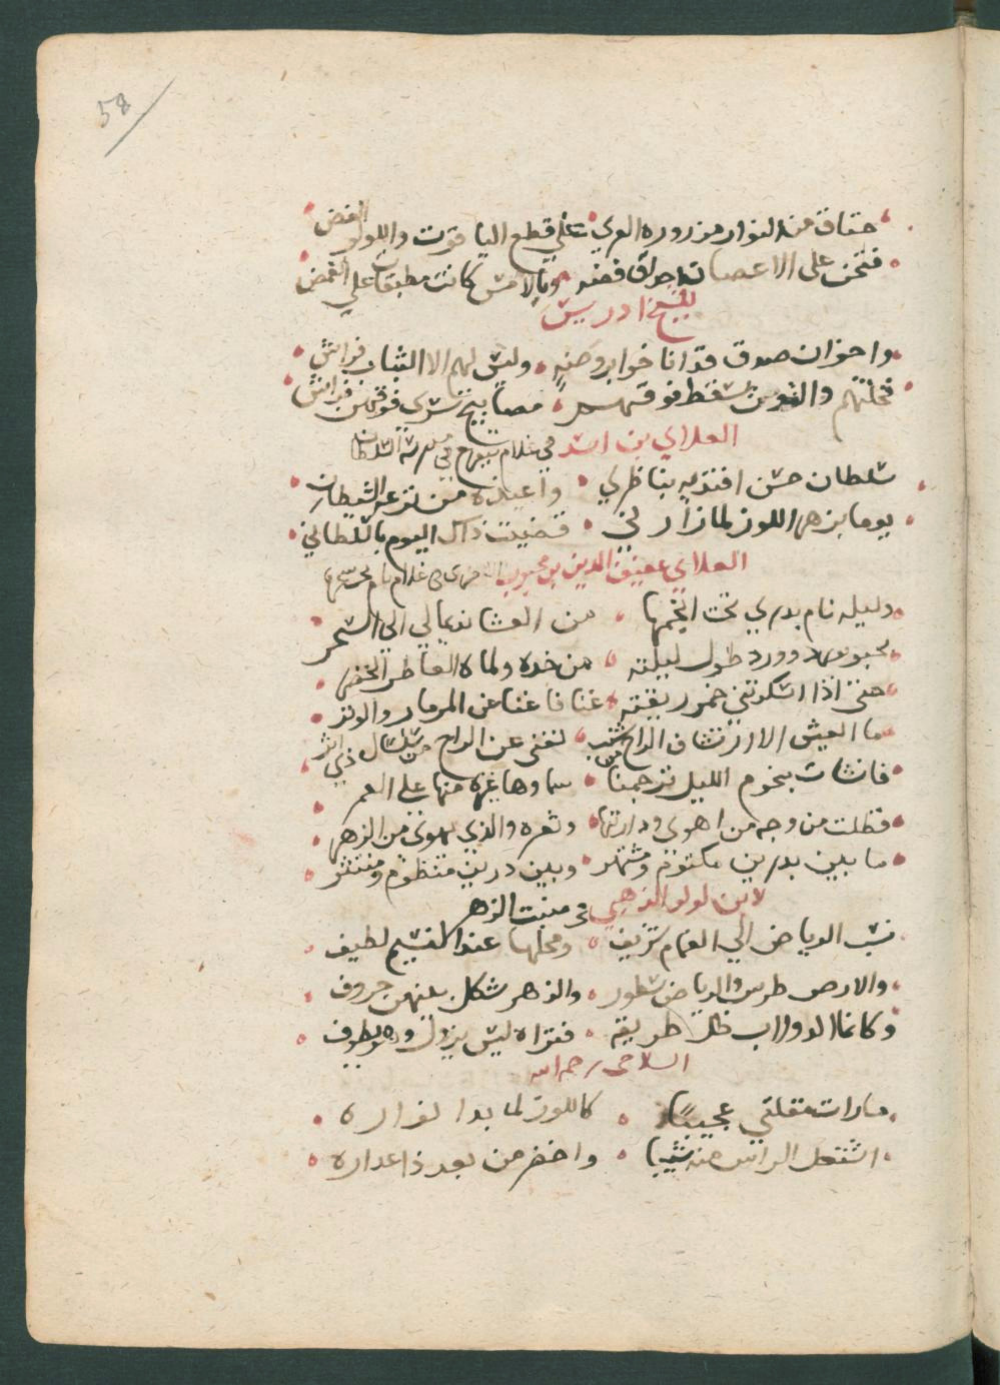 58
حقاق من النوار مزروره العري على قطع الياقوت واللولو الغض
فتحن على الاعصان اجواق فضه وبالامس كانت مطبقات على الغمض
للشيخ ادريس
واخوان صدق قد اناخوا بروضة وليس لهم الا النبات فراش
فخلتهم والنور يسقط فوقهم مصابيح تسري فوقهن فراش
العلاي بن اسد في غلام
سلطان حسن افتديه بناظري واعيذه من نزعه الشيطان
يوما بزهر اللوز لما زارني قضيت ذاك اليوم بالسلطاني
العلاي عفيف الدين بن محبوب
وليله نام بدري تحت انجمها من العشا ندمالي الي السحر
ورد طول ليلته من خده ولماه العاطر الخضر
حتى اذا اسكرتني خمر ريقته غنا فاغنا عن المزمار والوتر
ما العيش الا ارتشاف الراح من شنب تغني عن الراح من سلسال ذي اشر
فانشات بنجوم الليل ترجمنا سما وها غيرة منها على القمر
فظلت من وجه من اهوى ودارتها وثغره والذي يهوي من الزهر
ما بين بدرين مكتوم ومشتهر وبين درين منتظم ومنتثر
لابن لولو الذهبي في منبت الزهر
نسب الرياض الي الغمام شريف ومحلها عند النسيم لطيف
والارض طرس والرياض سطور والزهر شكل بينهن حروف
وكانما الدولاب ضل طريقه فتراه ليس يزول وهو يطوف
السلامى رحمه الله
ما رات مقلتي عجيبا كاللوز لما بدا نواره
اشتعل الراس منه شيبا واخضر من بعد ذا عذاره